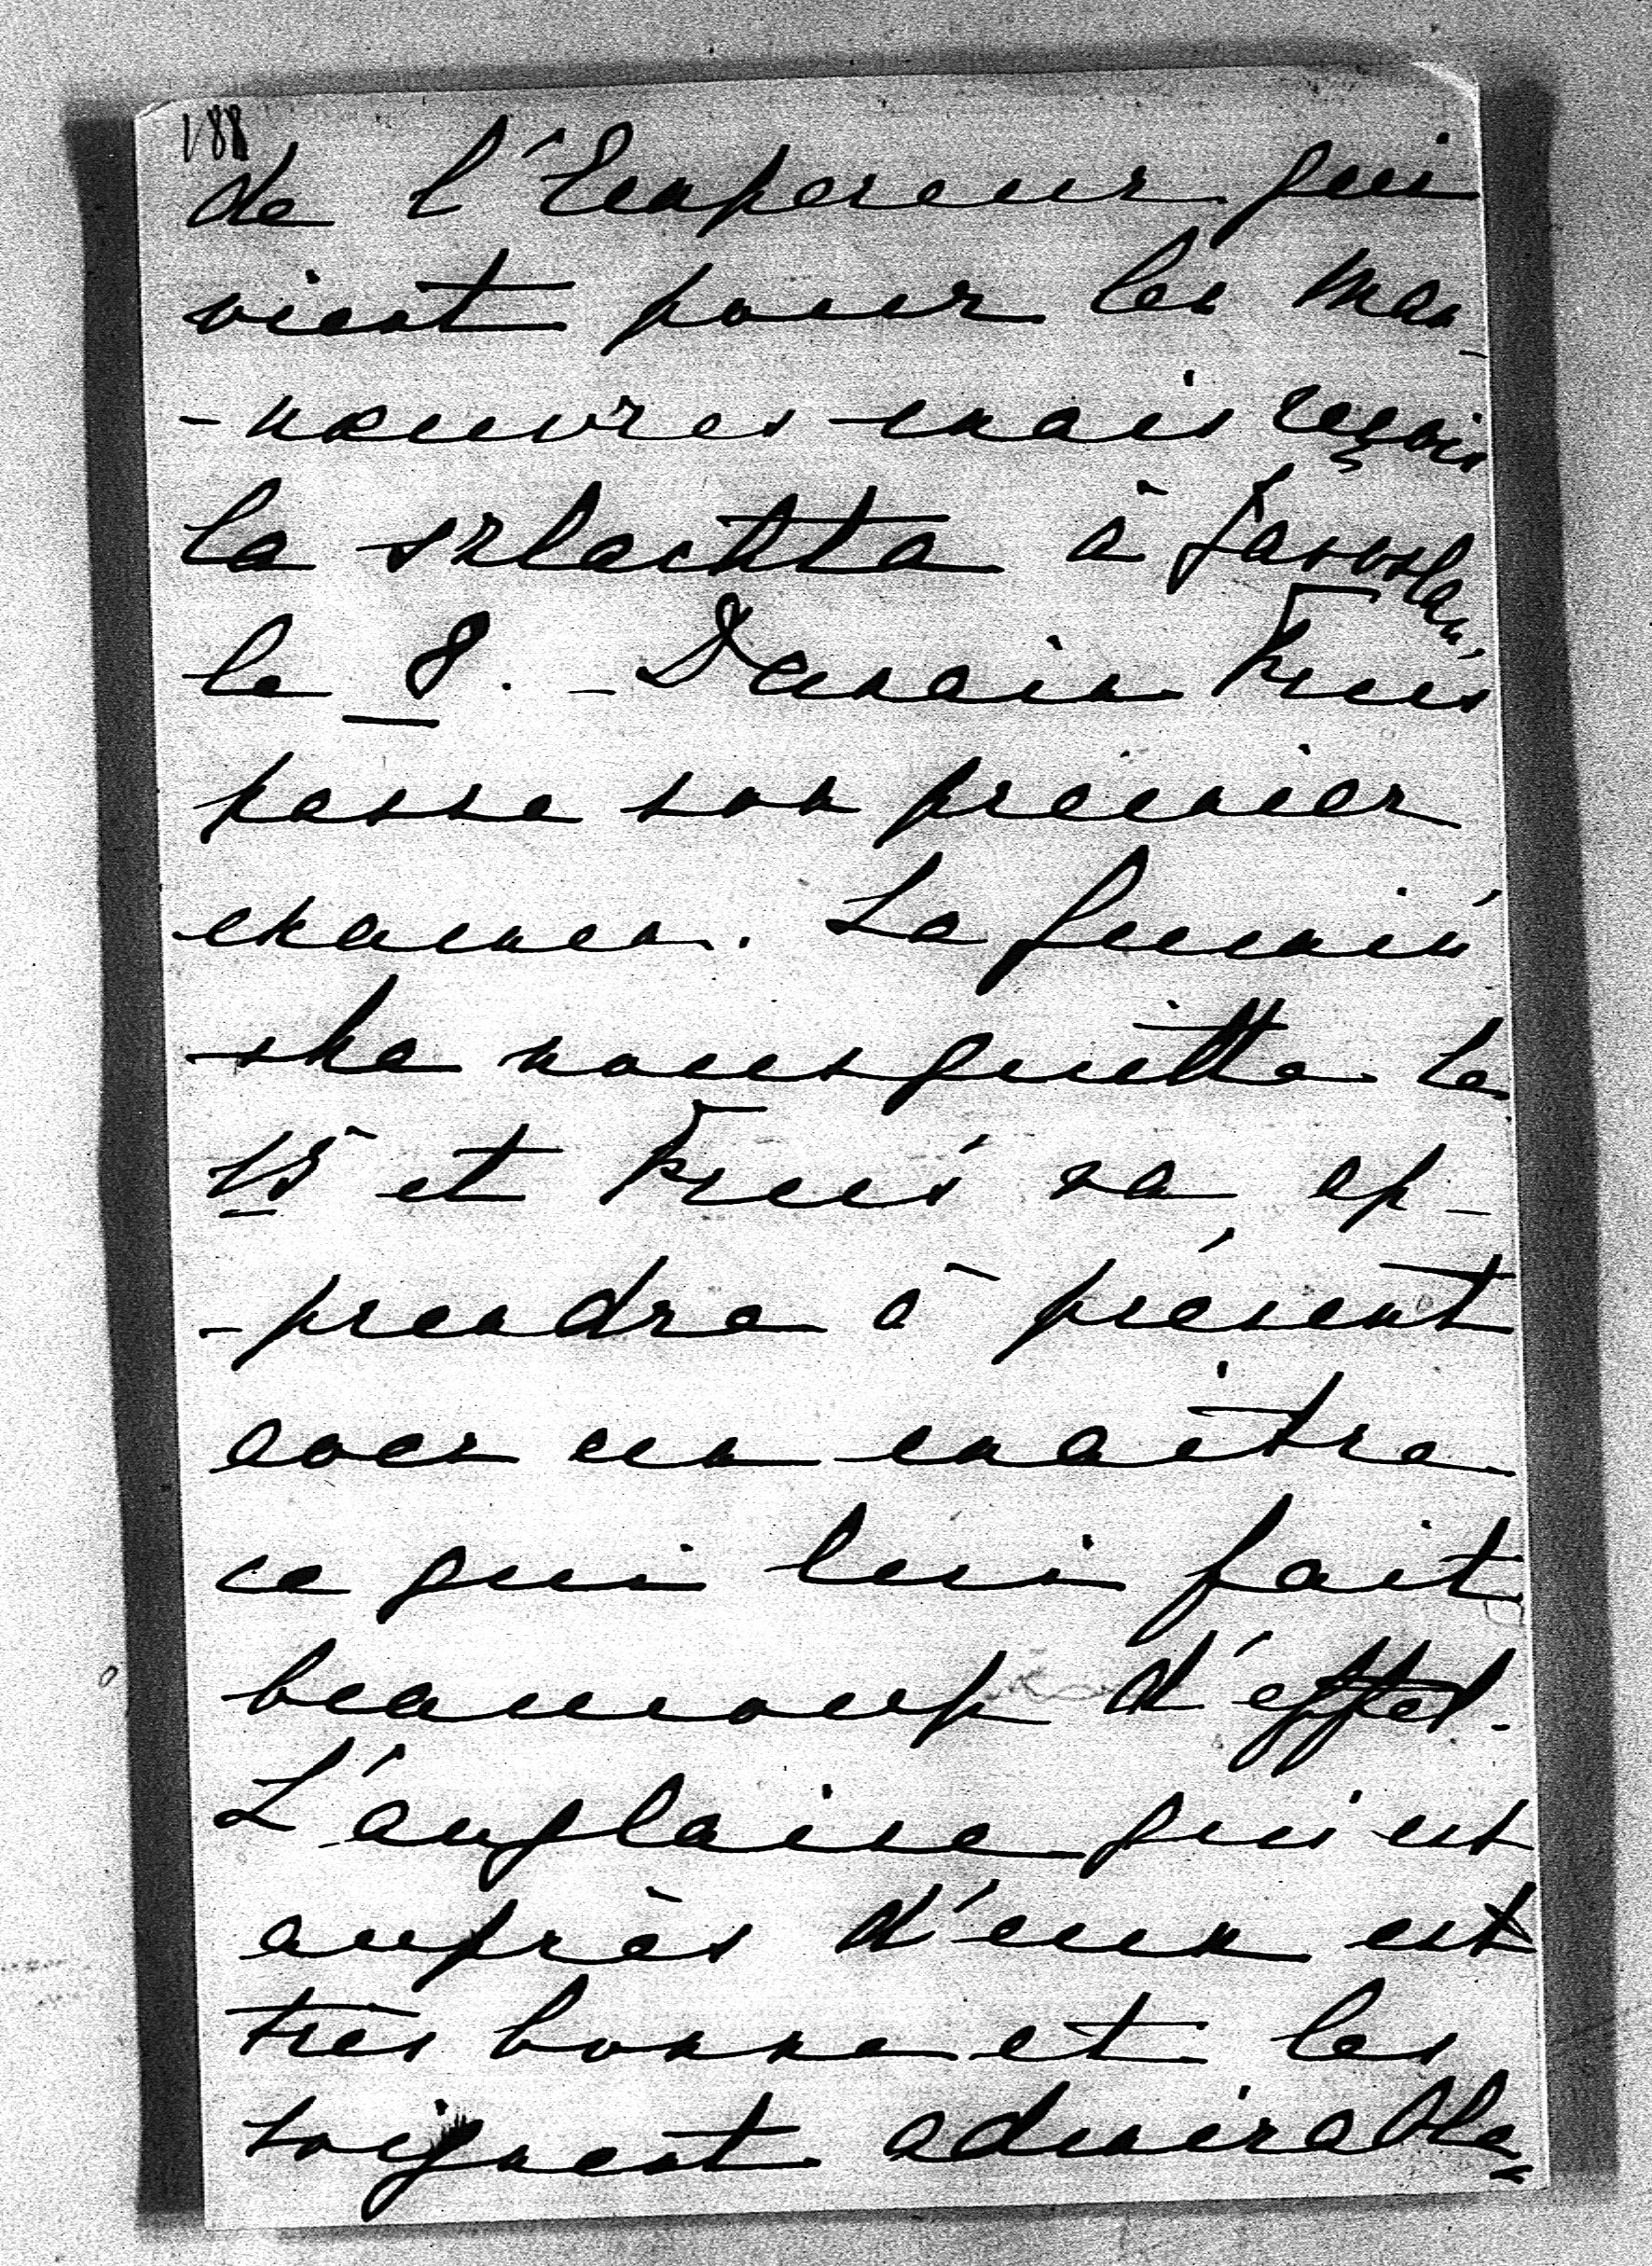 188
de l'Empereur qui
vient pour les man-
-nœuvres mais reçois
la szlachta à Jaroslau,
le 8. - Demain
passe son premier
examen. La
ska nous quitte le
15 et va ap-
-prendre à présent
avec un maître
ce qui lui fait
beaucoup d'effet.
L'anglaise qui est
auprès d'eux est
très bonne et les
soignent admirable-